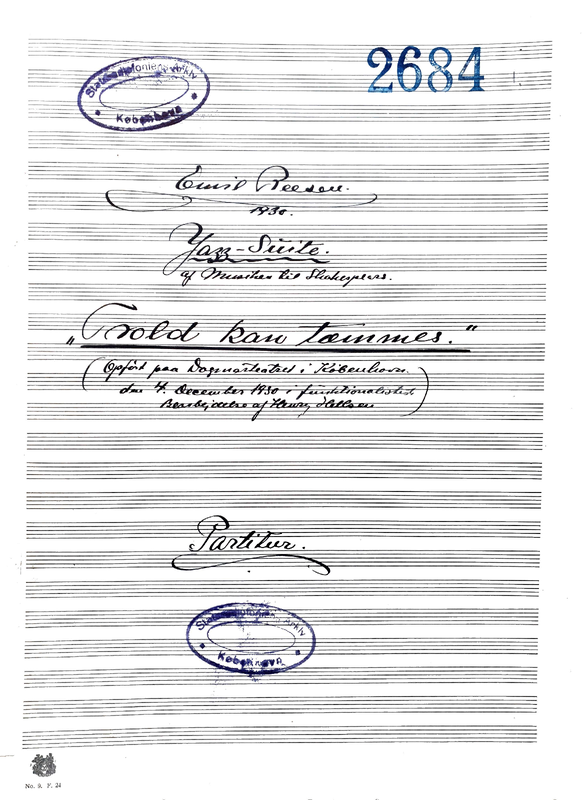 Statsradiofoniens Arkiv
København
2684
Emil Reesen.
1930.
Yazz-Suite.
af Musiken til Shakespeare.
„Trold kan tæmmes."
(Opført paa Dagmarteatret i København.
den 4. December 1930 i funktionalistisk
Bearbejdelse af Henry Hellssen)
Partitur.
Statsradiofoniens Arkiv
København
No. 9. F. 24